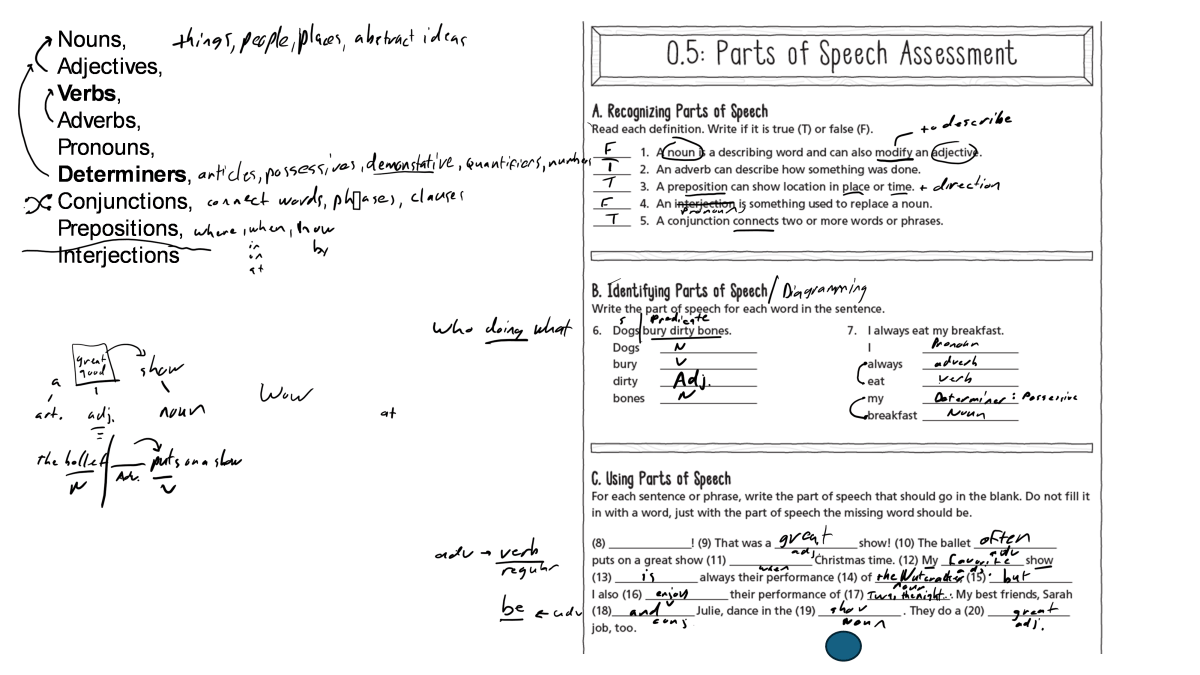 Nouns, things, people, places, abstract ideas
Adjectives,
Verbs,
Adverbs,
Pronouns,
Determiners, articles, possessives, demonstative, quantifiers, numbers
Conjunctions, connect words, phrases, clauses
Prepositions, where, when, how
in by
on
at
Interjections
who doing what
great
good
show
a
art. adj. noun
Wow
at
the ballet puts on a show
N Adv. V
adv → verb
regular
be ← adv
0.5: Parts of Speech Assessment
A. Recognizing Parts of Speech
Read each definition. Write if it is true (T) or false (F).
to describe
F 1. A noun is a describing word and can also modify an adjective.
T 2. An adverb can describe how something was done.
T 3. A preposition can show location in place or time. + direction
F 4. An interjection is something used to replace a noun.
pronoun
T 5. A conjunction connects two or more words or phrases.
B. Identifying Parts of Speech / Diagramming
Write the part of speech for each word in the sentence.
S Predicate
6. Dogs bury dirty bones.
Dogs N
bury V
dirty Adj.
bones N
7. I always eat my breakfast.
I Pronoun
always adverb
eat verb
my Determiner: Possessive
breakfast Noun
C. Using Parts of Speech
For each sentence or phrase, write the part of speech that should go in the blank. Do not fill it
in with a word, just with the part of speech the missing word should be.
(8) ! (9) That was a great show! (10) The ballet often
adj adv
puts on a great show (11) Christmas time. (12) My favorite show
when adj
(13) is always their performance (14) of the Nutcracker (15). but
noun
I also (16) enjoy their performance of (17) Twas the night. My best friends, Sarah
v
(18) and Julie, dance in the (19) show. They do a (20) great
conj noun adj.
job, too.